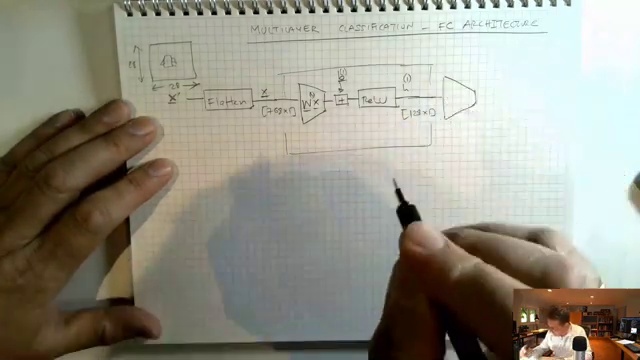 MULTILAYER CLASSIFICATION - FC ARCHITECTURE
28
28
X
Flatten
x
[768x1]
W x
+
ReLU
(1)
h
[128x1]